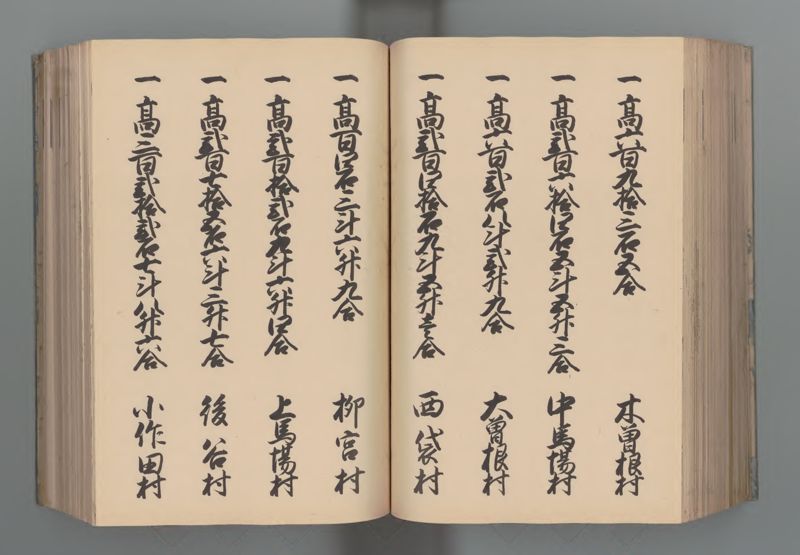 一 高六百九拾三石五合 木曽根村
一 高弐百六拾四石五斗五升三合 中馬場村
一 高六百弐石八斗弐升九合 大曽根村
一 高弐百四拾石九斗五升壱合 西袋村
一 高百四石三斗六升九合 柳宮村
一 高弐百拾弐石九斗六升四合 上馬場村
一 高弐百七拾五石六斗三升七合 後谷村
一 高三百弐拾弐石七斗八升六合 小作田村